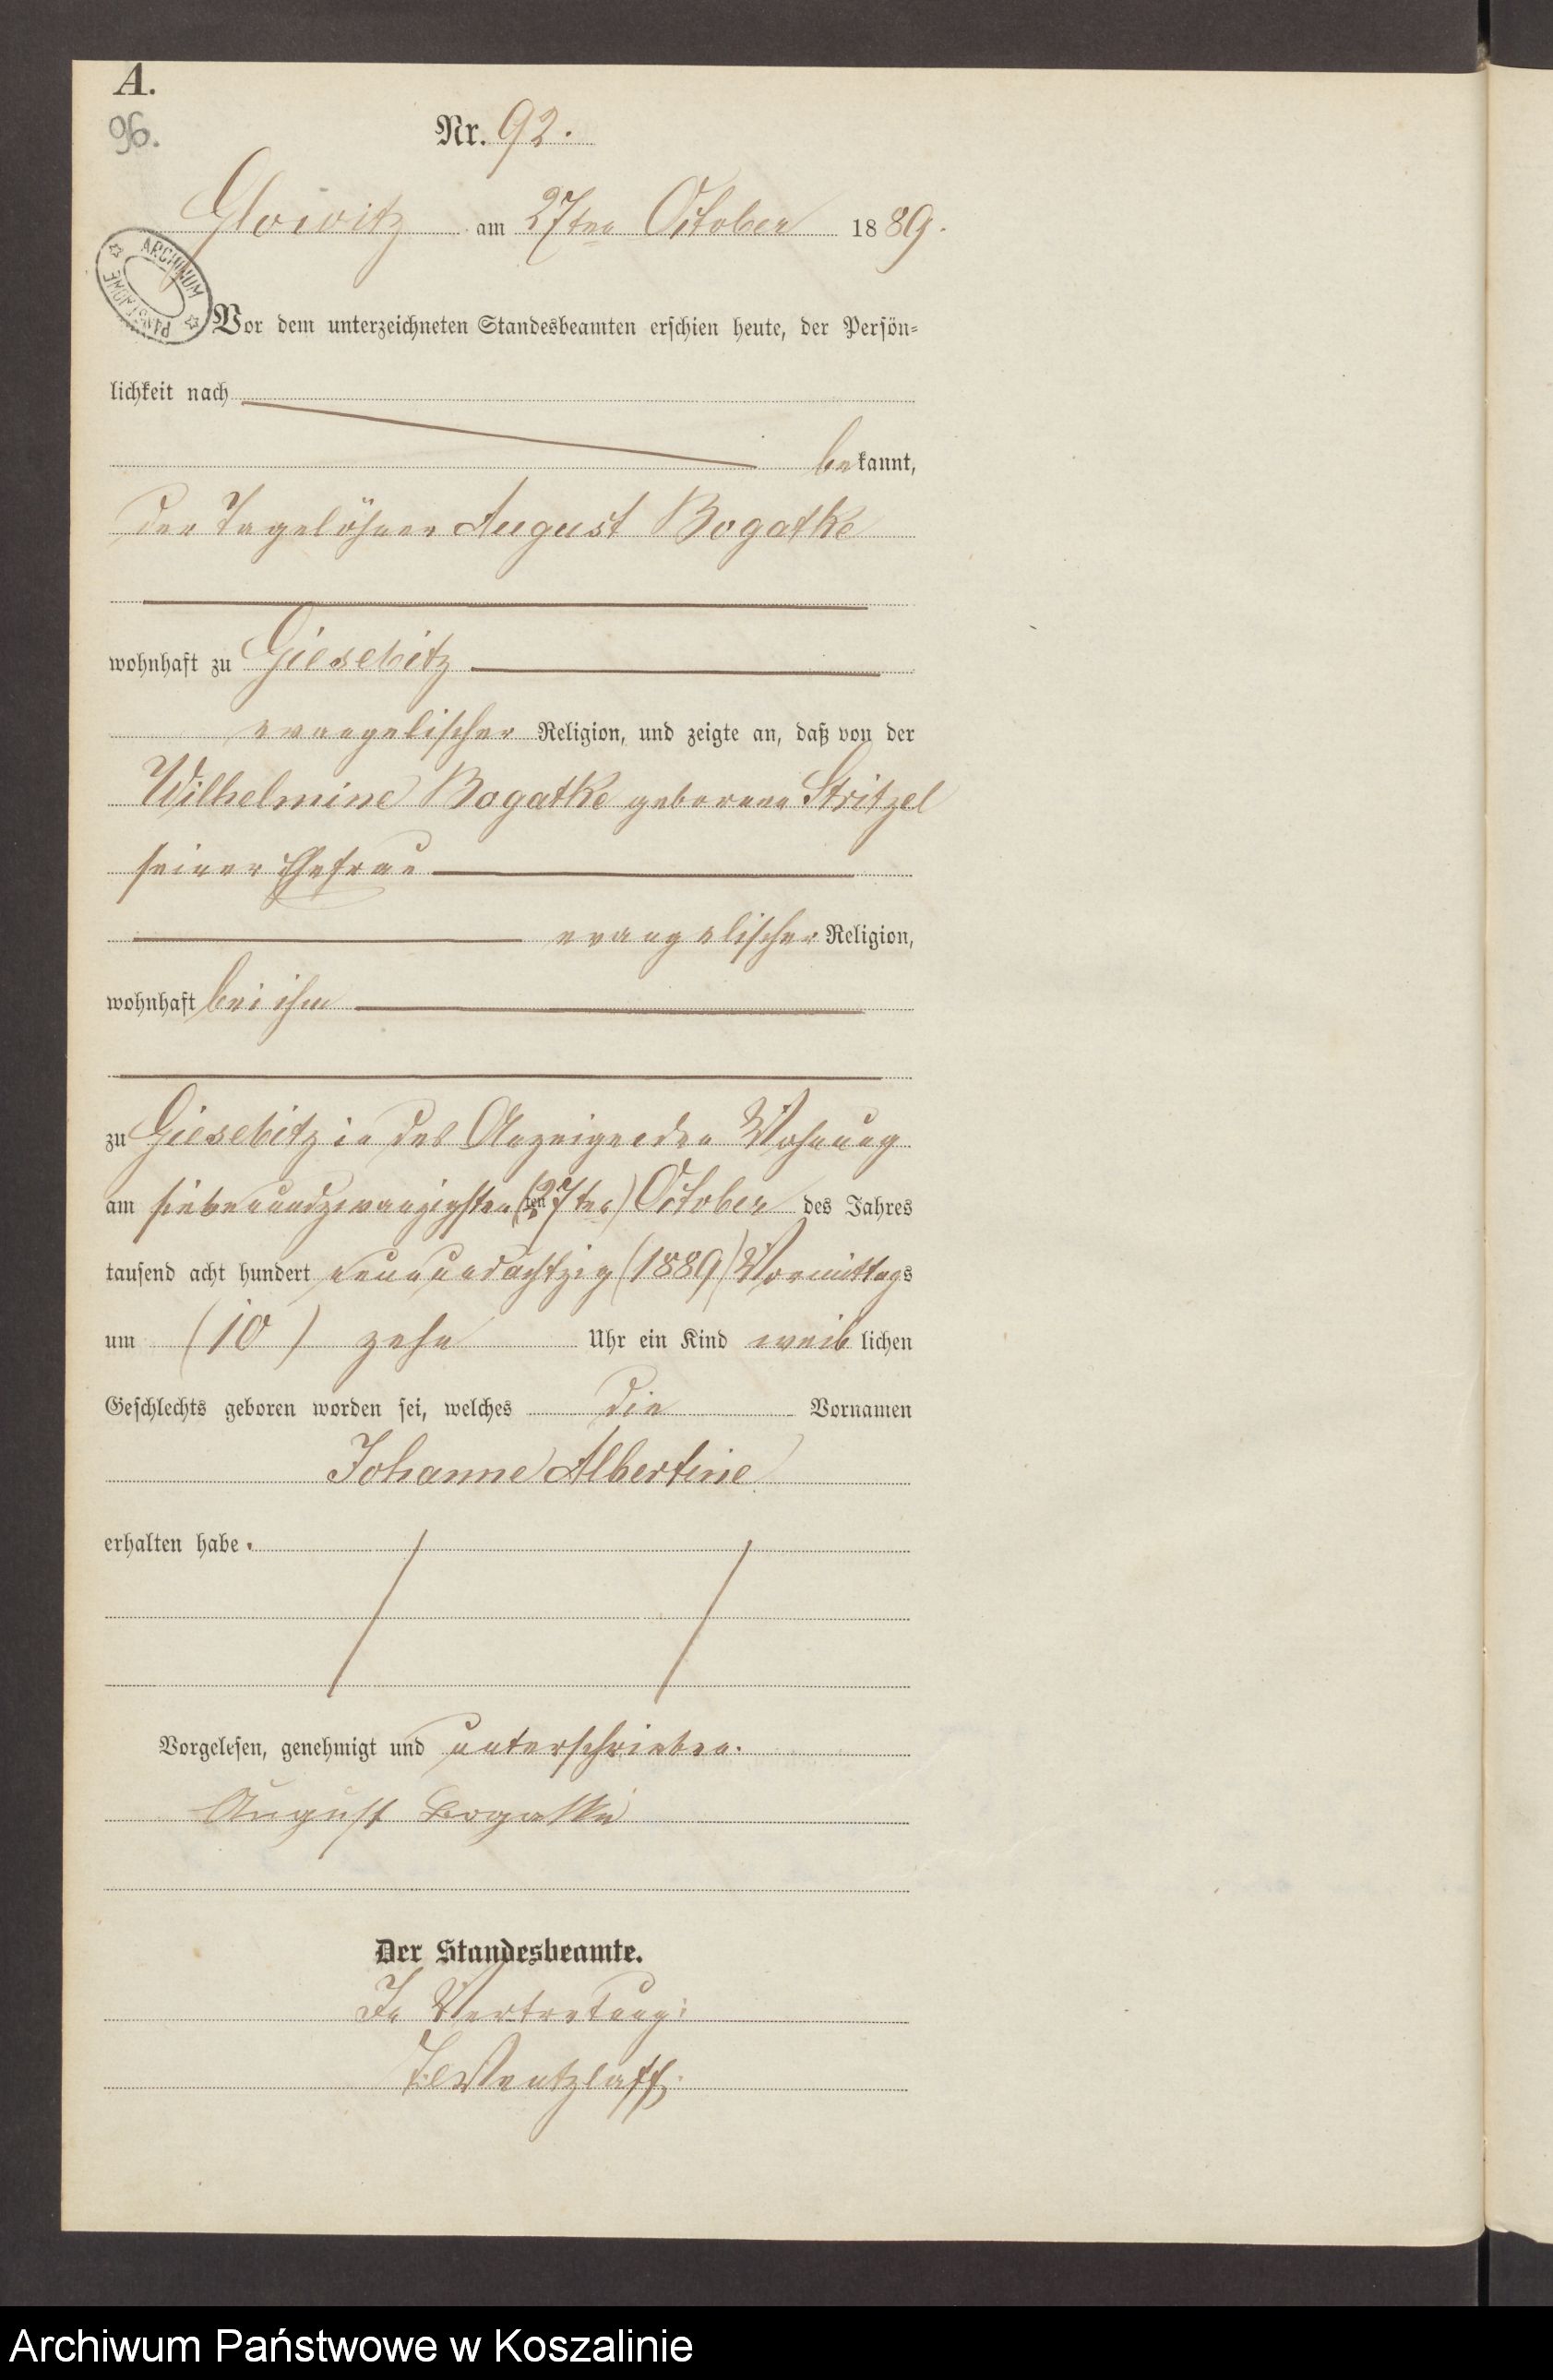 A.
96.
Nr. 92.
Glowitz am 27ten October 1889.
ARCHIWUM PAŃSTWOWE
Vor dem unterzeichneten Standesbeamten erschien heute, der Persön-
lichkeit nach
bekannt,
der Tagelöhner August Bogatke
wohnhaft zu Giesebitz
evangelischer Religion, und zeigte an, daß von der
Wilhelmine Bogatke geborene Stritzel
seiner Ehefrau
evangelischer Religion,
wohnhaft bei ihm
zu Giesebitz in des Anzeigenden Wohnung
am siebenundzwanzigsten (27ten) October des Jahres
tausend acht hundert neunundachtzig (1889) Vormittags
um (10) zehn Uhr ein Kind weiblichen
Geschlechts geboren worden sei, welches die Vornamen
Johanne Albertine
erhalten habe.
Vorgelesen, genehmigt und unterschrieben.
August Bogatke
Der Standesbeamte.
In Vertretung:
Wentzlaff.
Archiwum Państwowe w Koszalinie